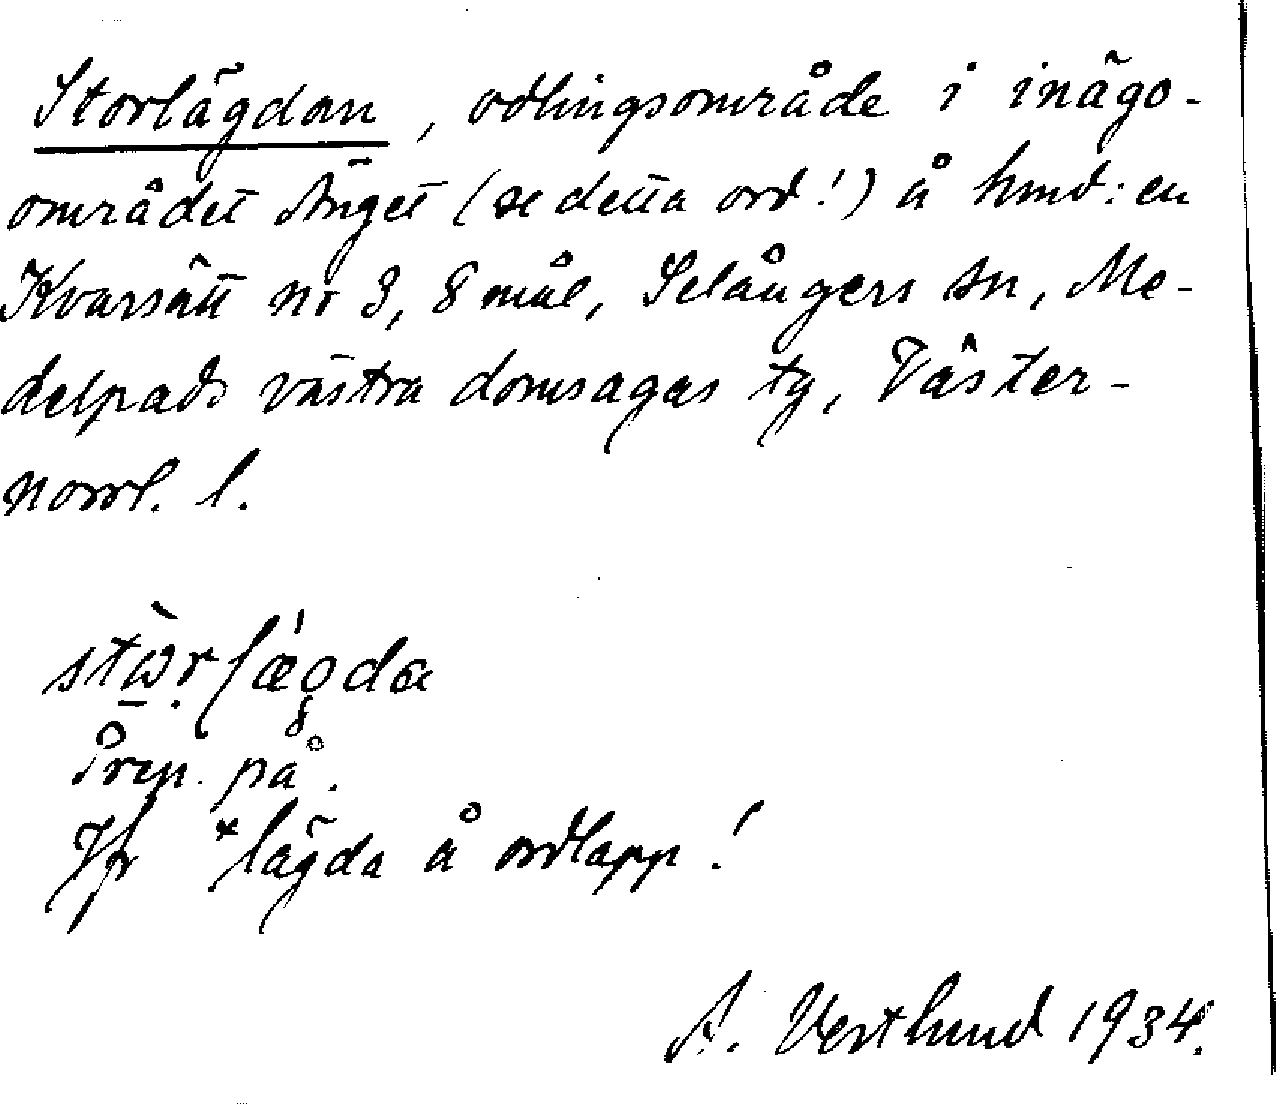 Storlägdan, odlingsområde i inägo-
området Änget (se detta ord!) å hmd:en
Kvarsätt nr 3, 8 mål, Selångers sn, Me-
delpads västra domsagas tg, Väster-
norrl. l.
stὼrlǽgda
Prep. på.
Jfr *lägda å ordlapp!
A. Vestlund 1934.